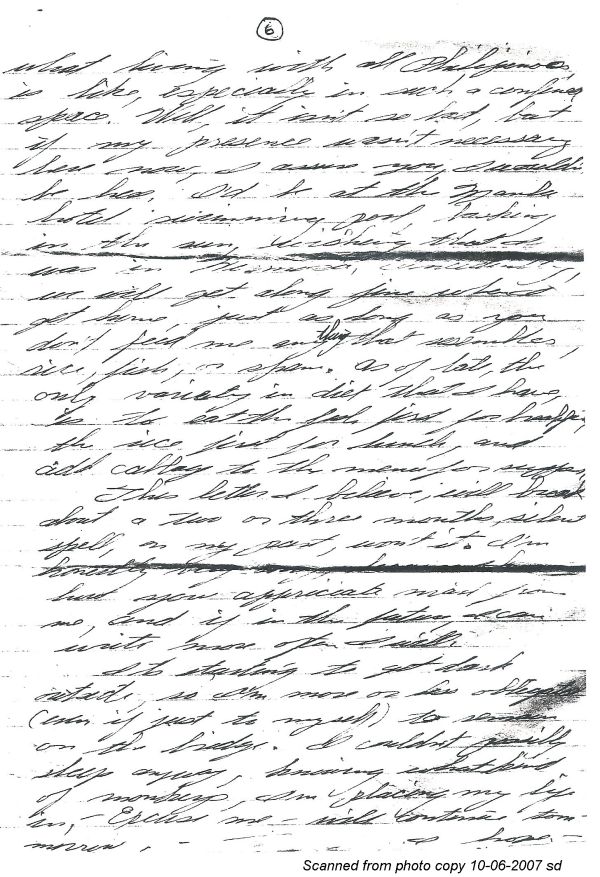 6
what living with all Philippinos,
is like, especially in such a confined
space. Well, it isn't so bad, but
if my presence wasn't necessary
here now, I assure you, I wouldn't
be here. I'd be at the Manila
hotel swimming pool, basking
in the sun, wishing that I
was in
we will get along fine when I
get home, just as long as you
don't feed me anything that resembles,
rice, fish, or spam. As of late, the
only variety in diet that I have,
is to eat the fish first for breakfast,
the rice first for lunch, and
add cabbage to the menu for supper.
This letter I believe, will break
about a two or three months, silent
spell, on my part, won't it. I'm
how you appreciate mail from
me, and if in the future, I can
write more often I will.
It's starting to get dark
outside, so I'm more or less obligated
(even if just to myself) to remain
on the bridge. I couldn't
sleep anyway, knowing what kind
of monkeys, I'm placing my life
in, - Excuse me - will continue tom-
morrow, - I hope -
Scanned from photo copy 10-06-2007 sd